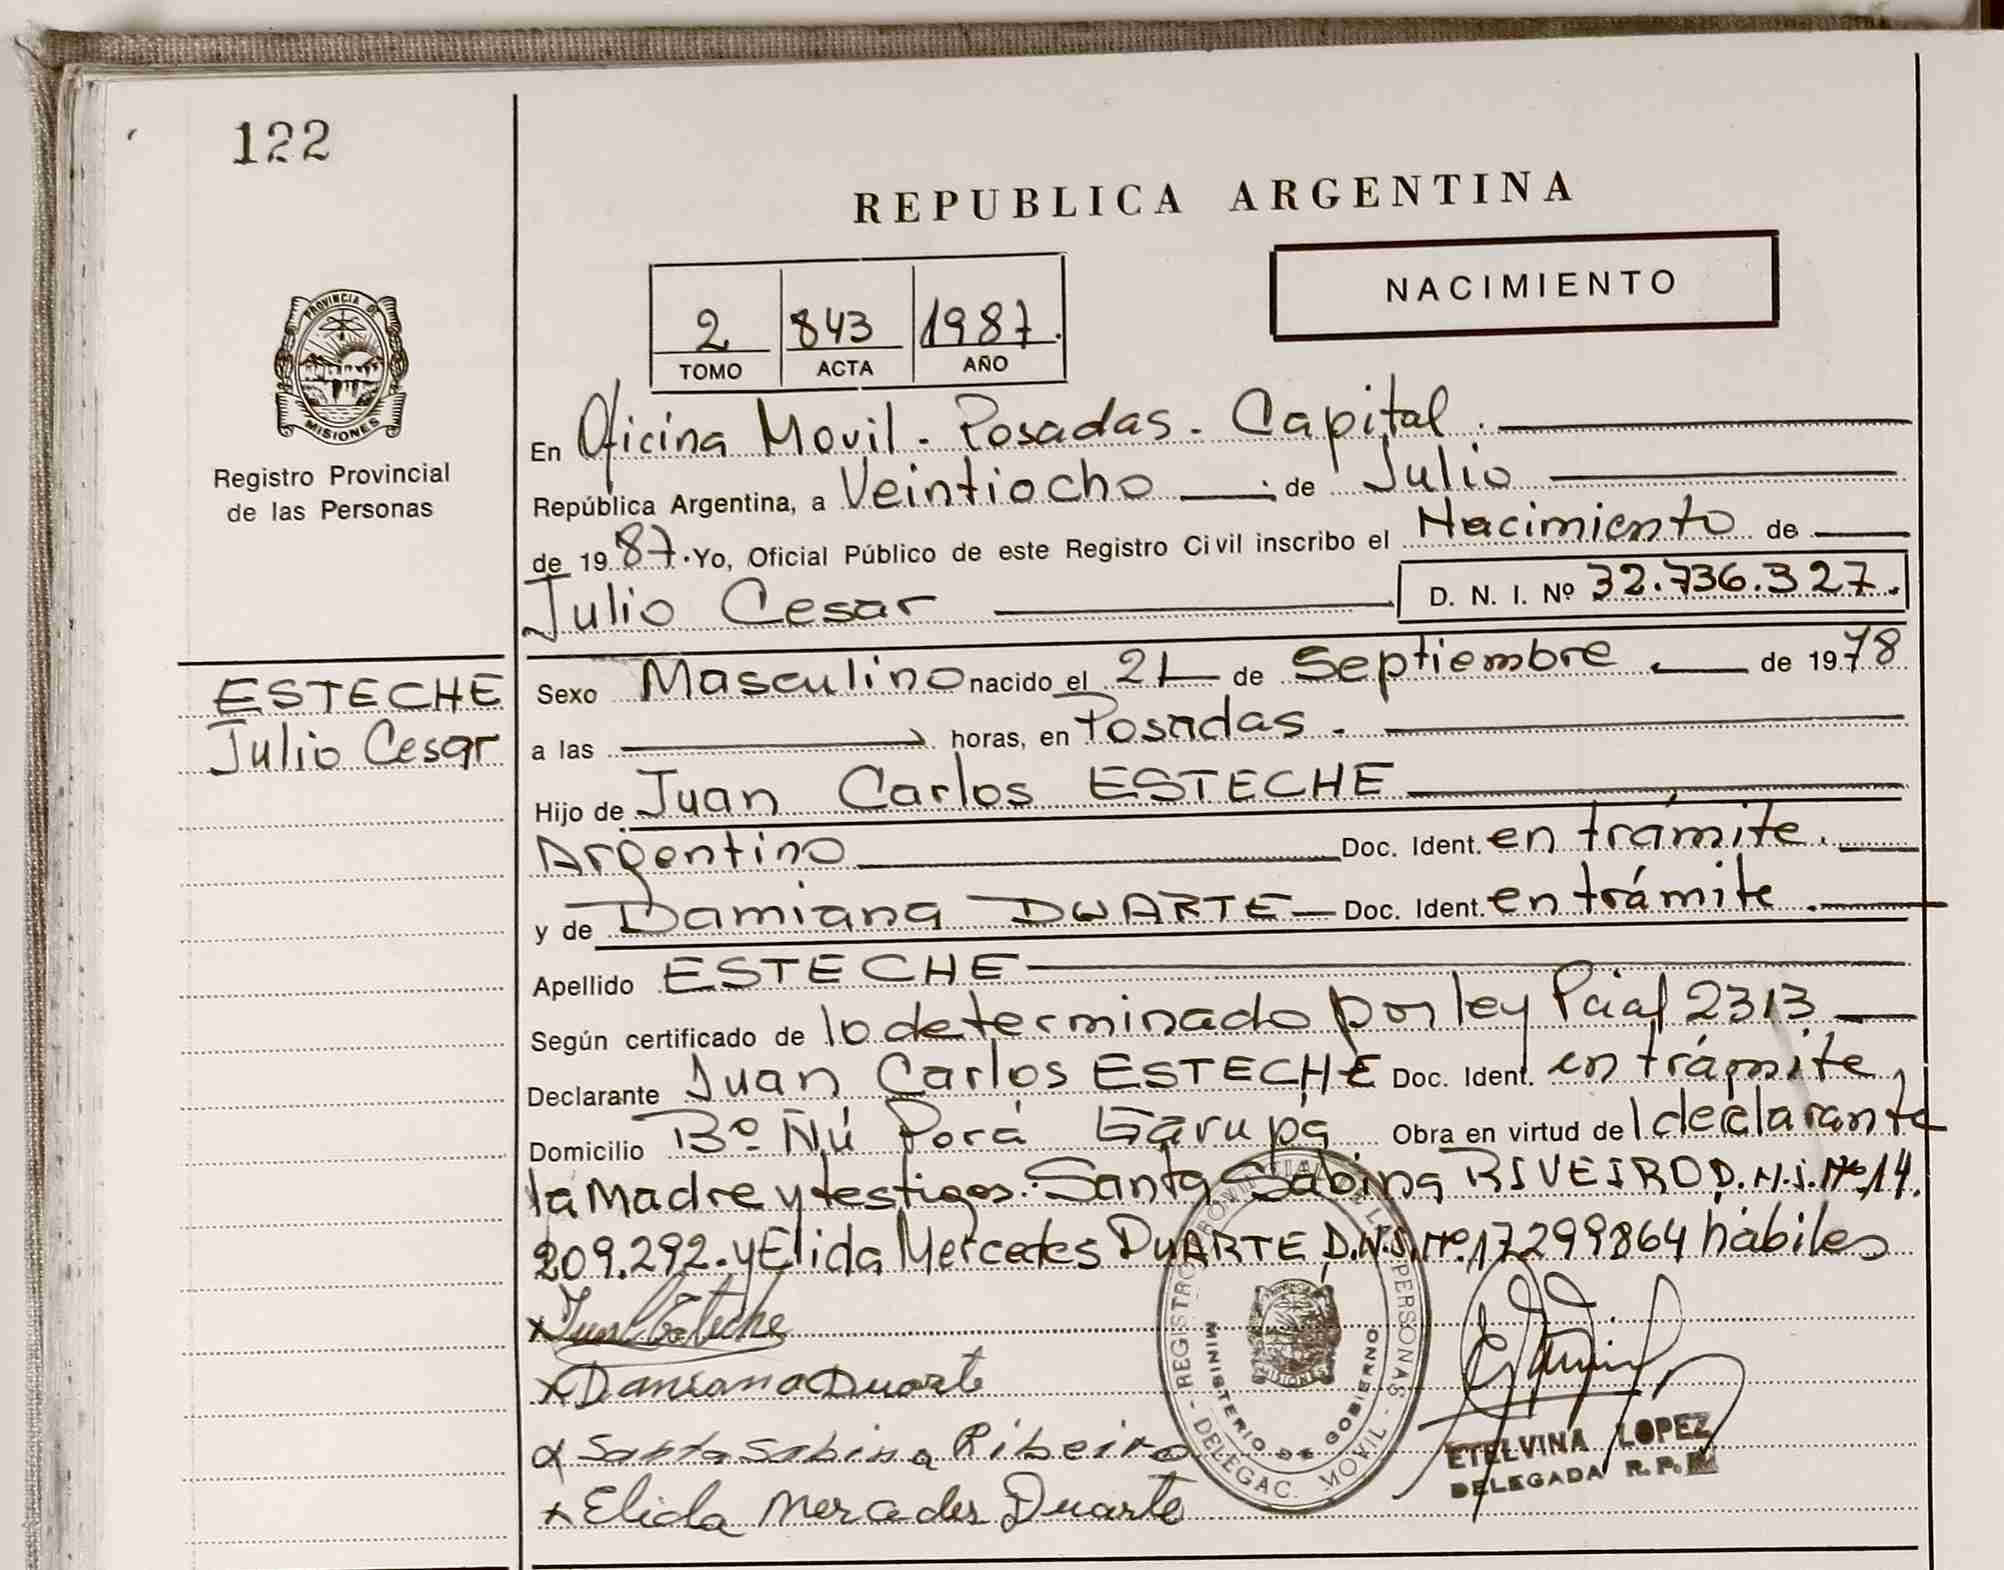 122
REPUBLICA ARGENTINA
NACIMIENTO
2 843 1987.
TOMO ACTA AÑO
PROVINCIA DE
MISIONES
Registro Provincial
de las Personas
En Oficina Movil - Posadas - Capital.
República Argentina, a Veintiocho de Julio
de 1987. Yo, Oficial Público de este Registro Civil inscribo el Nacimiento de
Julio Cesar D. N. I. Nº 32.736.327.
ESTECHE
Julio Cesar
Sexo Masculino nacido el 21 de Septiembre de 1978
a las horas, en Posadas.
Hijo de Juan Carlos ESTECHE
Argentino Doc. Ident. en trámite.
y de Damiana DUARTE Doc. Ident. en trámite.
Apellido ESTECHE
Según certificado de lo determinado por ley Pcial 2313
Declarante Juan Carlos ESTECHE Doc. Ident. en trámite
Domicilio Bº Ñú Porá Garupá Obra en virtud de l declarante
la Madre y testigos: Santa Sabina RIVEIRO D.N.I. Nº 14.
209.292. y Elida Mercedes DUARTE D.N.I. Nº 17299864 hábiles
x Juan C Esteche
x Damiana Duarte
x Santa Sabina Ribeiro
x Elida Mercedes Duarte
REGISTRO PROVINCIAL DE LAS PERSONAS - DELEGAC. MOVIL -
MINISTERIO DE GOBIERNO
MISIONES
ETELVINA LOPEZ
DELEGADA R. P.